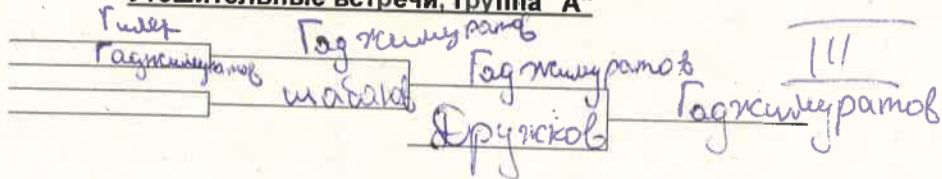 Утешительные встречи, группа "А"
Гилер
Гаджимуратов
Гаджимуратов
шабанов
Гаджимуратов
Дружков
Гаджимуратов
III